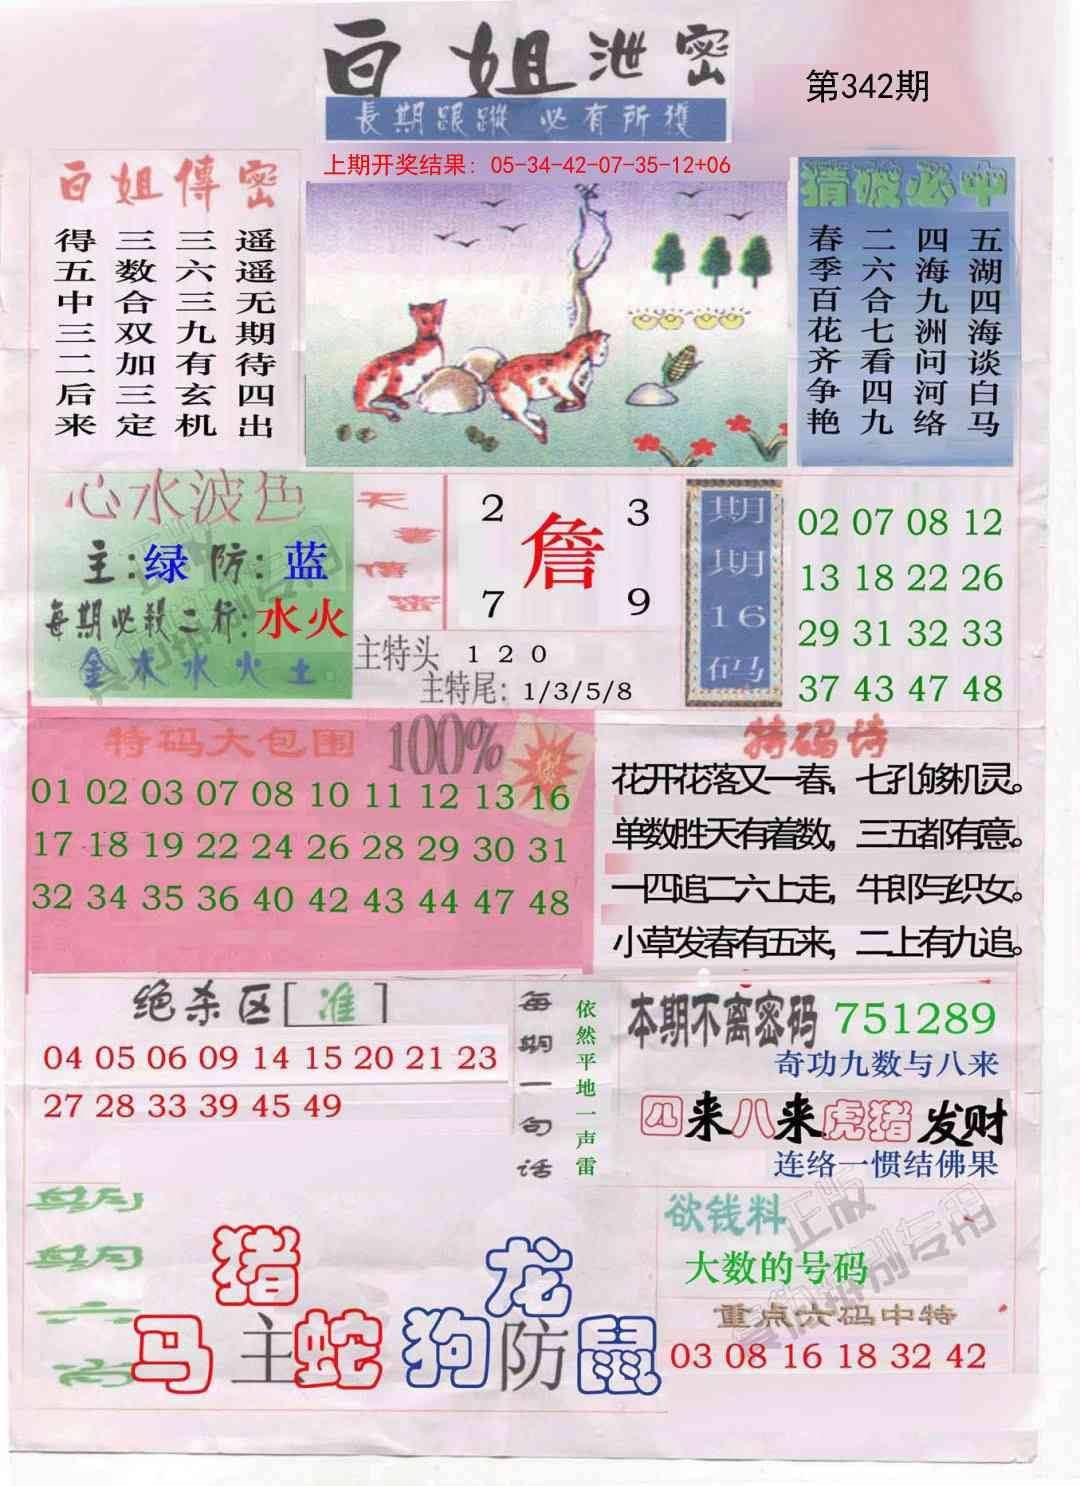 白姐泄密
第342期
長期跟蹤 必有所獲
上期开奖结果：05-34-42-07-35-12+06
白姐傳密
遥遥无期待四出
三六三九有玄机
三数合双加三定
得五中三二后来
猜破必中
五湖四海谈白马
四海九洲问河络
二六合七看四九
春季百花齐争艳
心水波色
主:绿 防:蓝
每期必殺二行:水火
金木水火土
2 3
詹
7 9
主特头 1 2 0
主特尾: 1/3/5/8
期期16码
02 07 08 12
13 18 22 26
29 31 32 33
37 43 47 48
特码大包围 100%
01 02 03 07 08 10 11 12 13 16
17 18 19 22 24 26 28 29 30 31
32 34 35 36 40 42 43 44 47 48
特码诗
花开花落又一春，七孔够机灵。
单数胜天有着数，三五都有意。
一四追二六上走，牛郎与织女。
小草发春有五来，二上有九追。
绝杀区[准]
04 05 06 09 14 15 20 21 23
27 28 33 39 45 49
每期一句话
依然平地一声雷
本期不离密码 751289
奇功九数与八来
四来八来虎猪发财
连络一惯结佛果
欲钱料
大数的号码
重点六码中特
03 08 16 18 32 42
猪
马 主 蛇
龙
狗 防 鼠